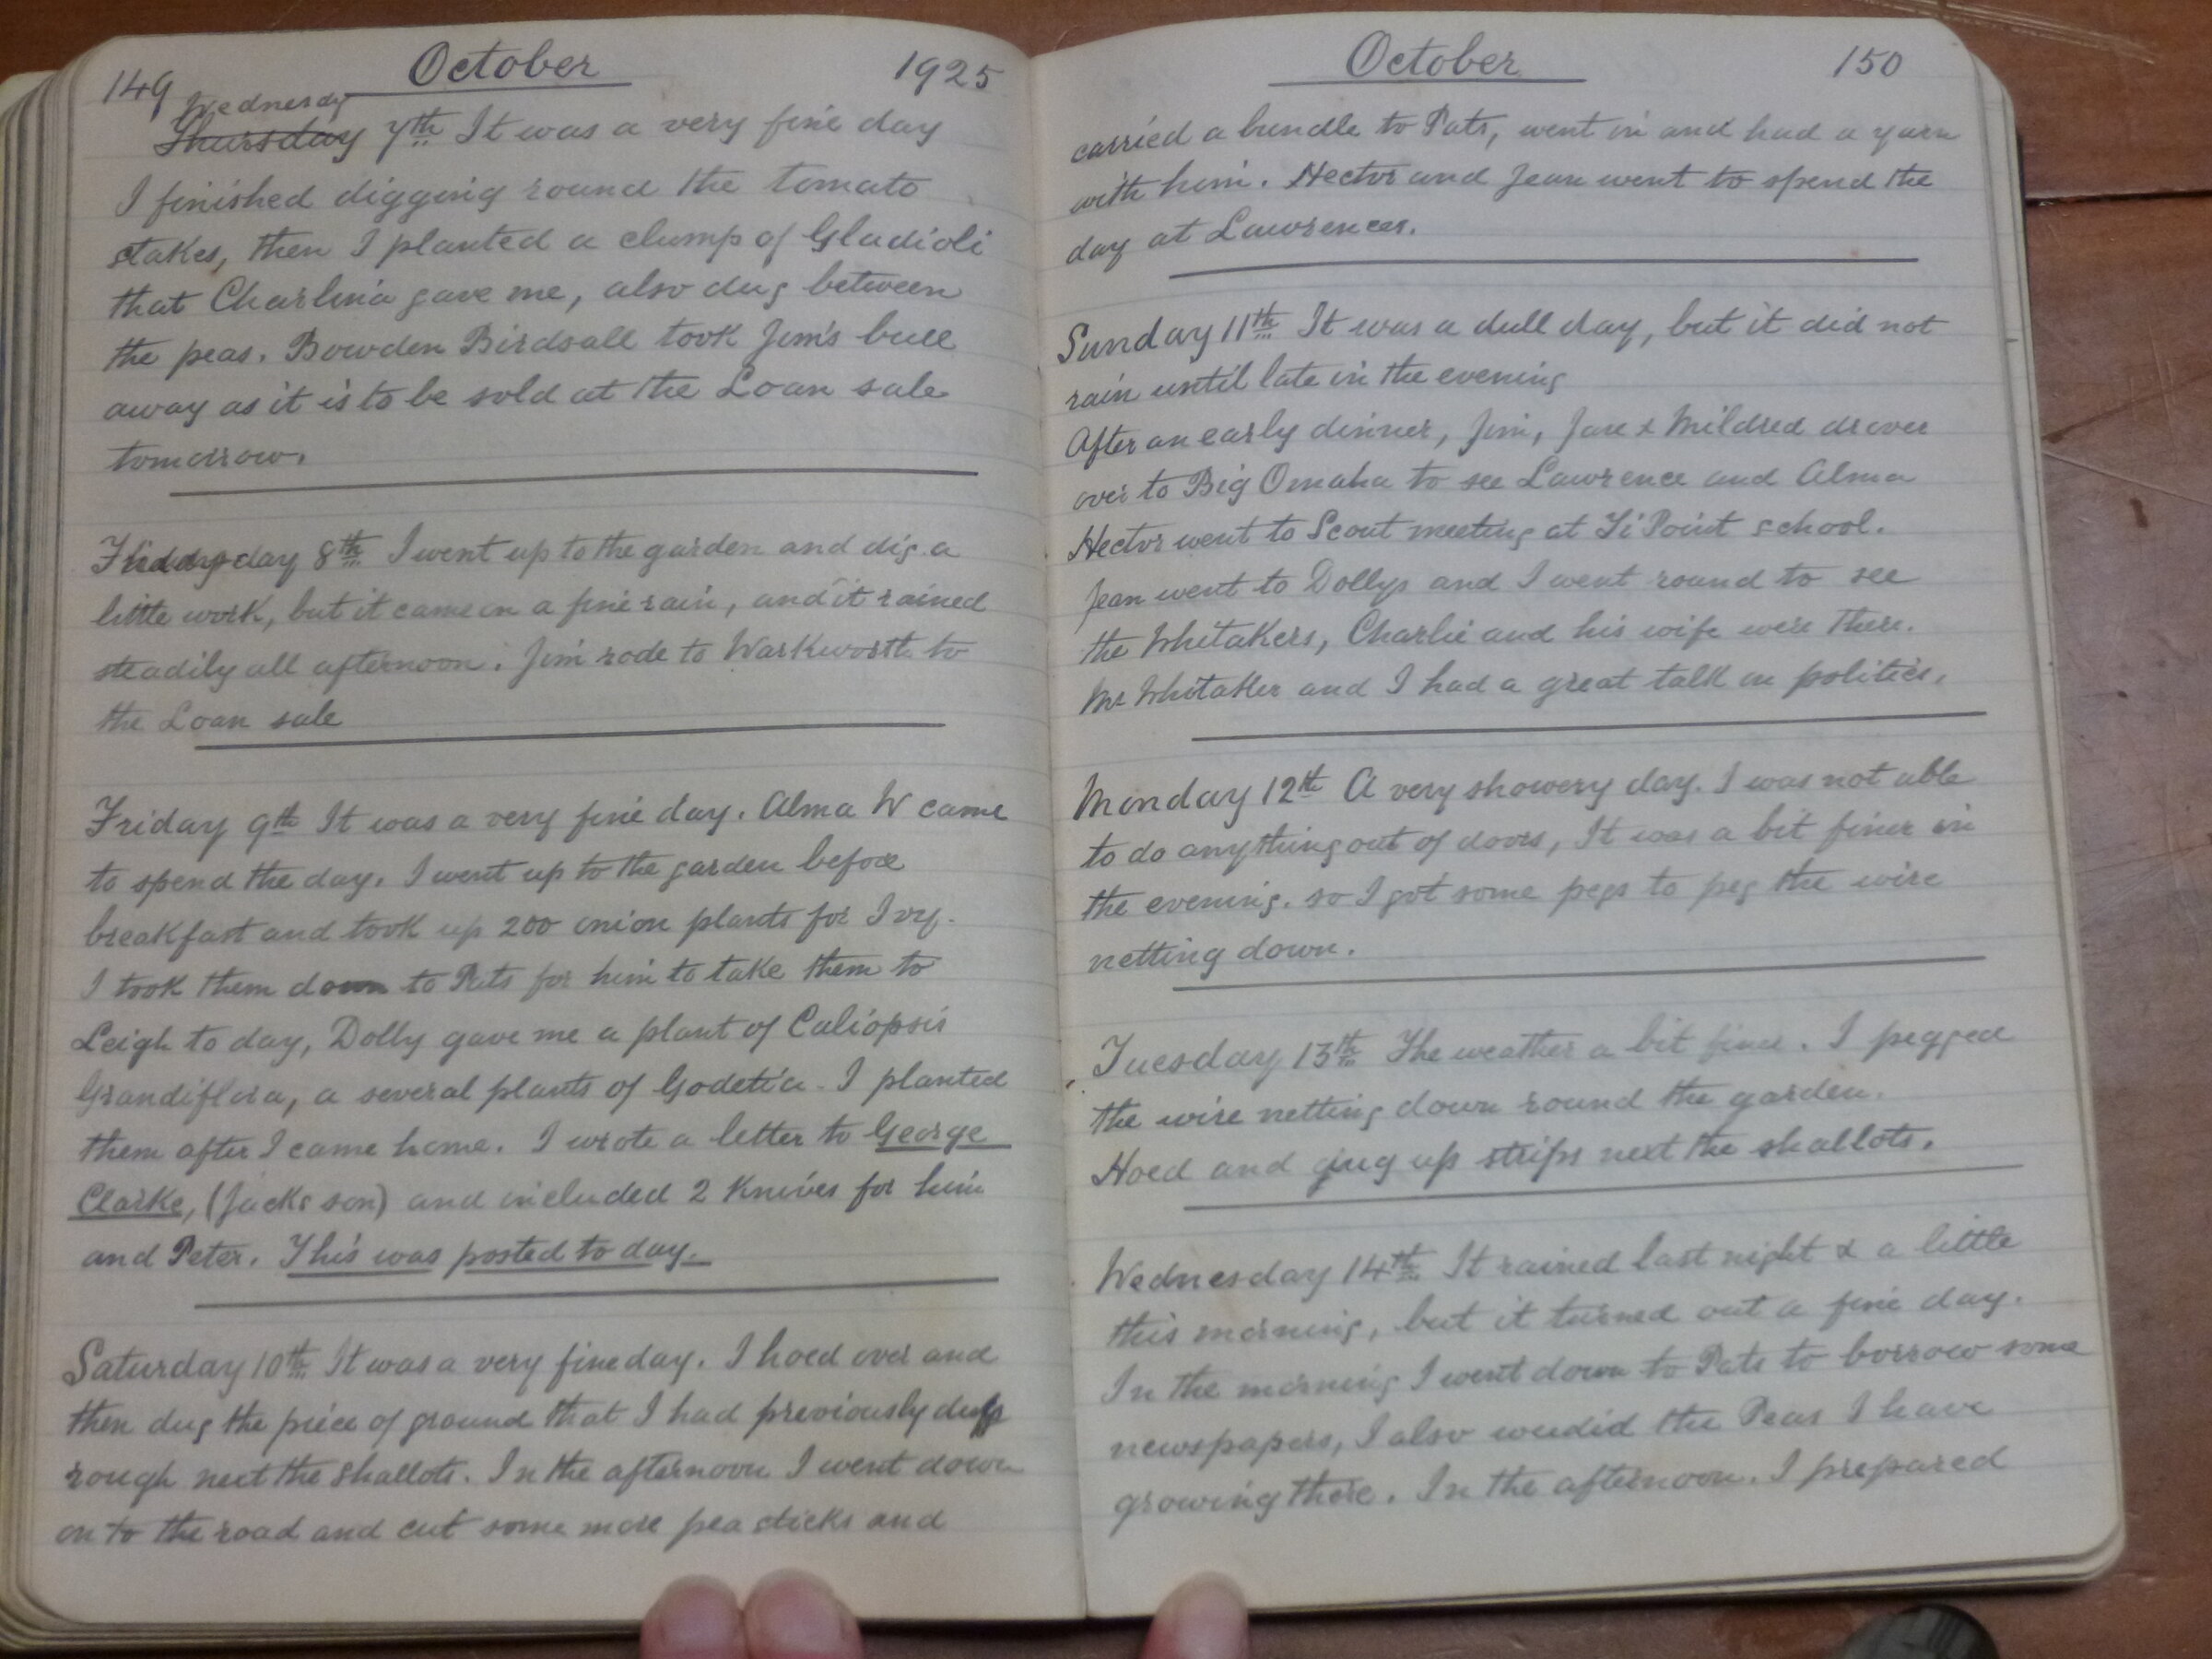 149 October 1925
Wednesdy
Thursday 7th It was a very fine day
I finished digging round the tomato
stakes, then I planted a clump of Gladioli
that Charlina gave me, also dug between
the peas. Bowden Birdsall took Jim's bull
away as it is to be sold at the Loan sale
tomorrow.
day 8th I went up to the garden and dig a
little work, but it came on a fine rain, and it rained
steadily all afternoon. Jim rode to Warkworth to
the Loan sale
Friday 9th It was a very fine day. Alma W came
to spend the day. I went up to the garden before
breakfast and took up 200 onion plants for Ivy.
I took them down to Pats for him to take them to
Leigh to day, Dolly gave me a plant of Caliopsis
Grandiflora, a several plants of Godetia. I planted
them after I came home. I wrote a letter to George
Clarke, (Jacks son) and included 2 Knives for him
and Peter. This was posted to day.
Saturday 10th It was a very fine day. I hoed over and
then dug the piece of ground that I had previously dug
rough next the shallots. In the afternoon I went down
on to the road and cut some more pea sticks and
October 150
carried a bundle to Pats, went in and had a yarn
with him. Hector and Jean went to spend the
day at Lawrences.
Sunday 11th It was a dull day, but it did not
rain until late in the evening
After an early dinner, Jim, Jane & Mildred drover
over to Big Omaha to see Lawrence and Alma
Hector went to Scout meeting at Ti Point school.
Jean went to Dollys and I went round to see
the Whitakers, Charlie and his wife were there.
Mr Whitaker and I had a great talk on politics.
Monday 12th A very showery day. I was not able
to do anything out of doors, It was a bit finer in
the evening. so I got some pegs to peg the wire
netting down.
Tuesday 13th The weather a bit finer. I pegged
the wire netting down round the garden.
Hoed and dug up strips next the shallots.
Wednesday 14th It rained last night & a little
this morning, but it turned out a fine day.
In the morning I went down to Pats to borrow some
newspapers, I also weedid the Peas I have
growing there. In the afternoon. I prepared